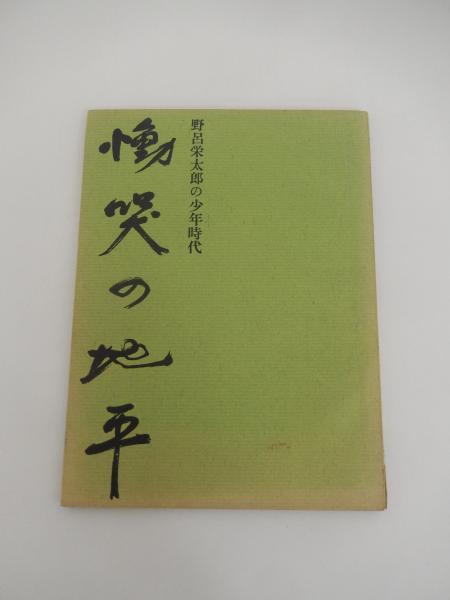 野呂栄太郎の少年時代
慟哭の地平